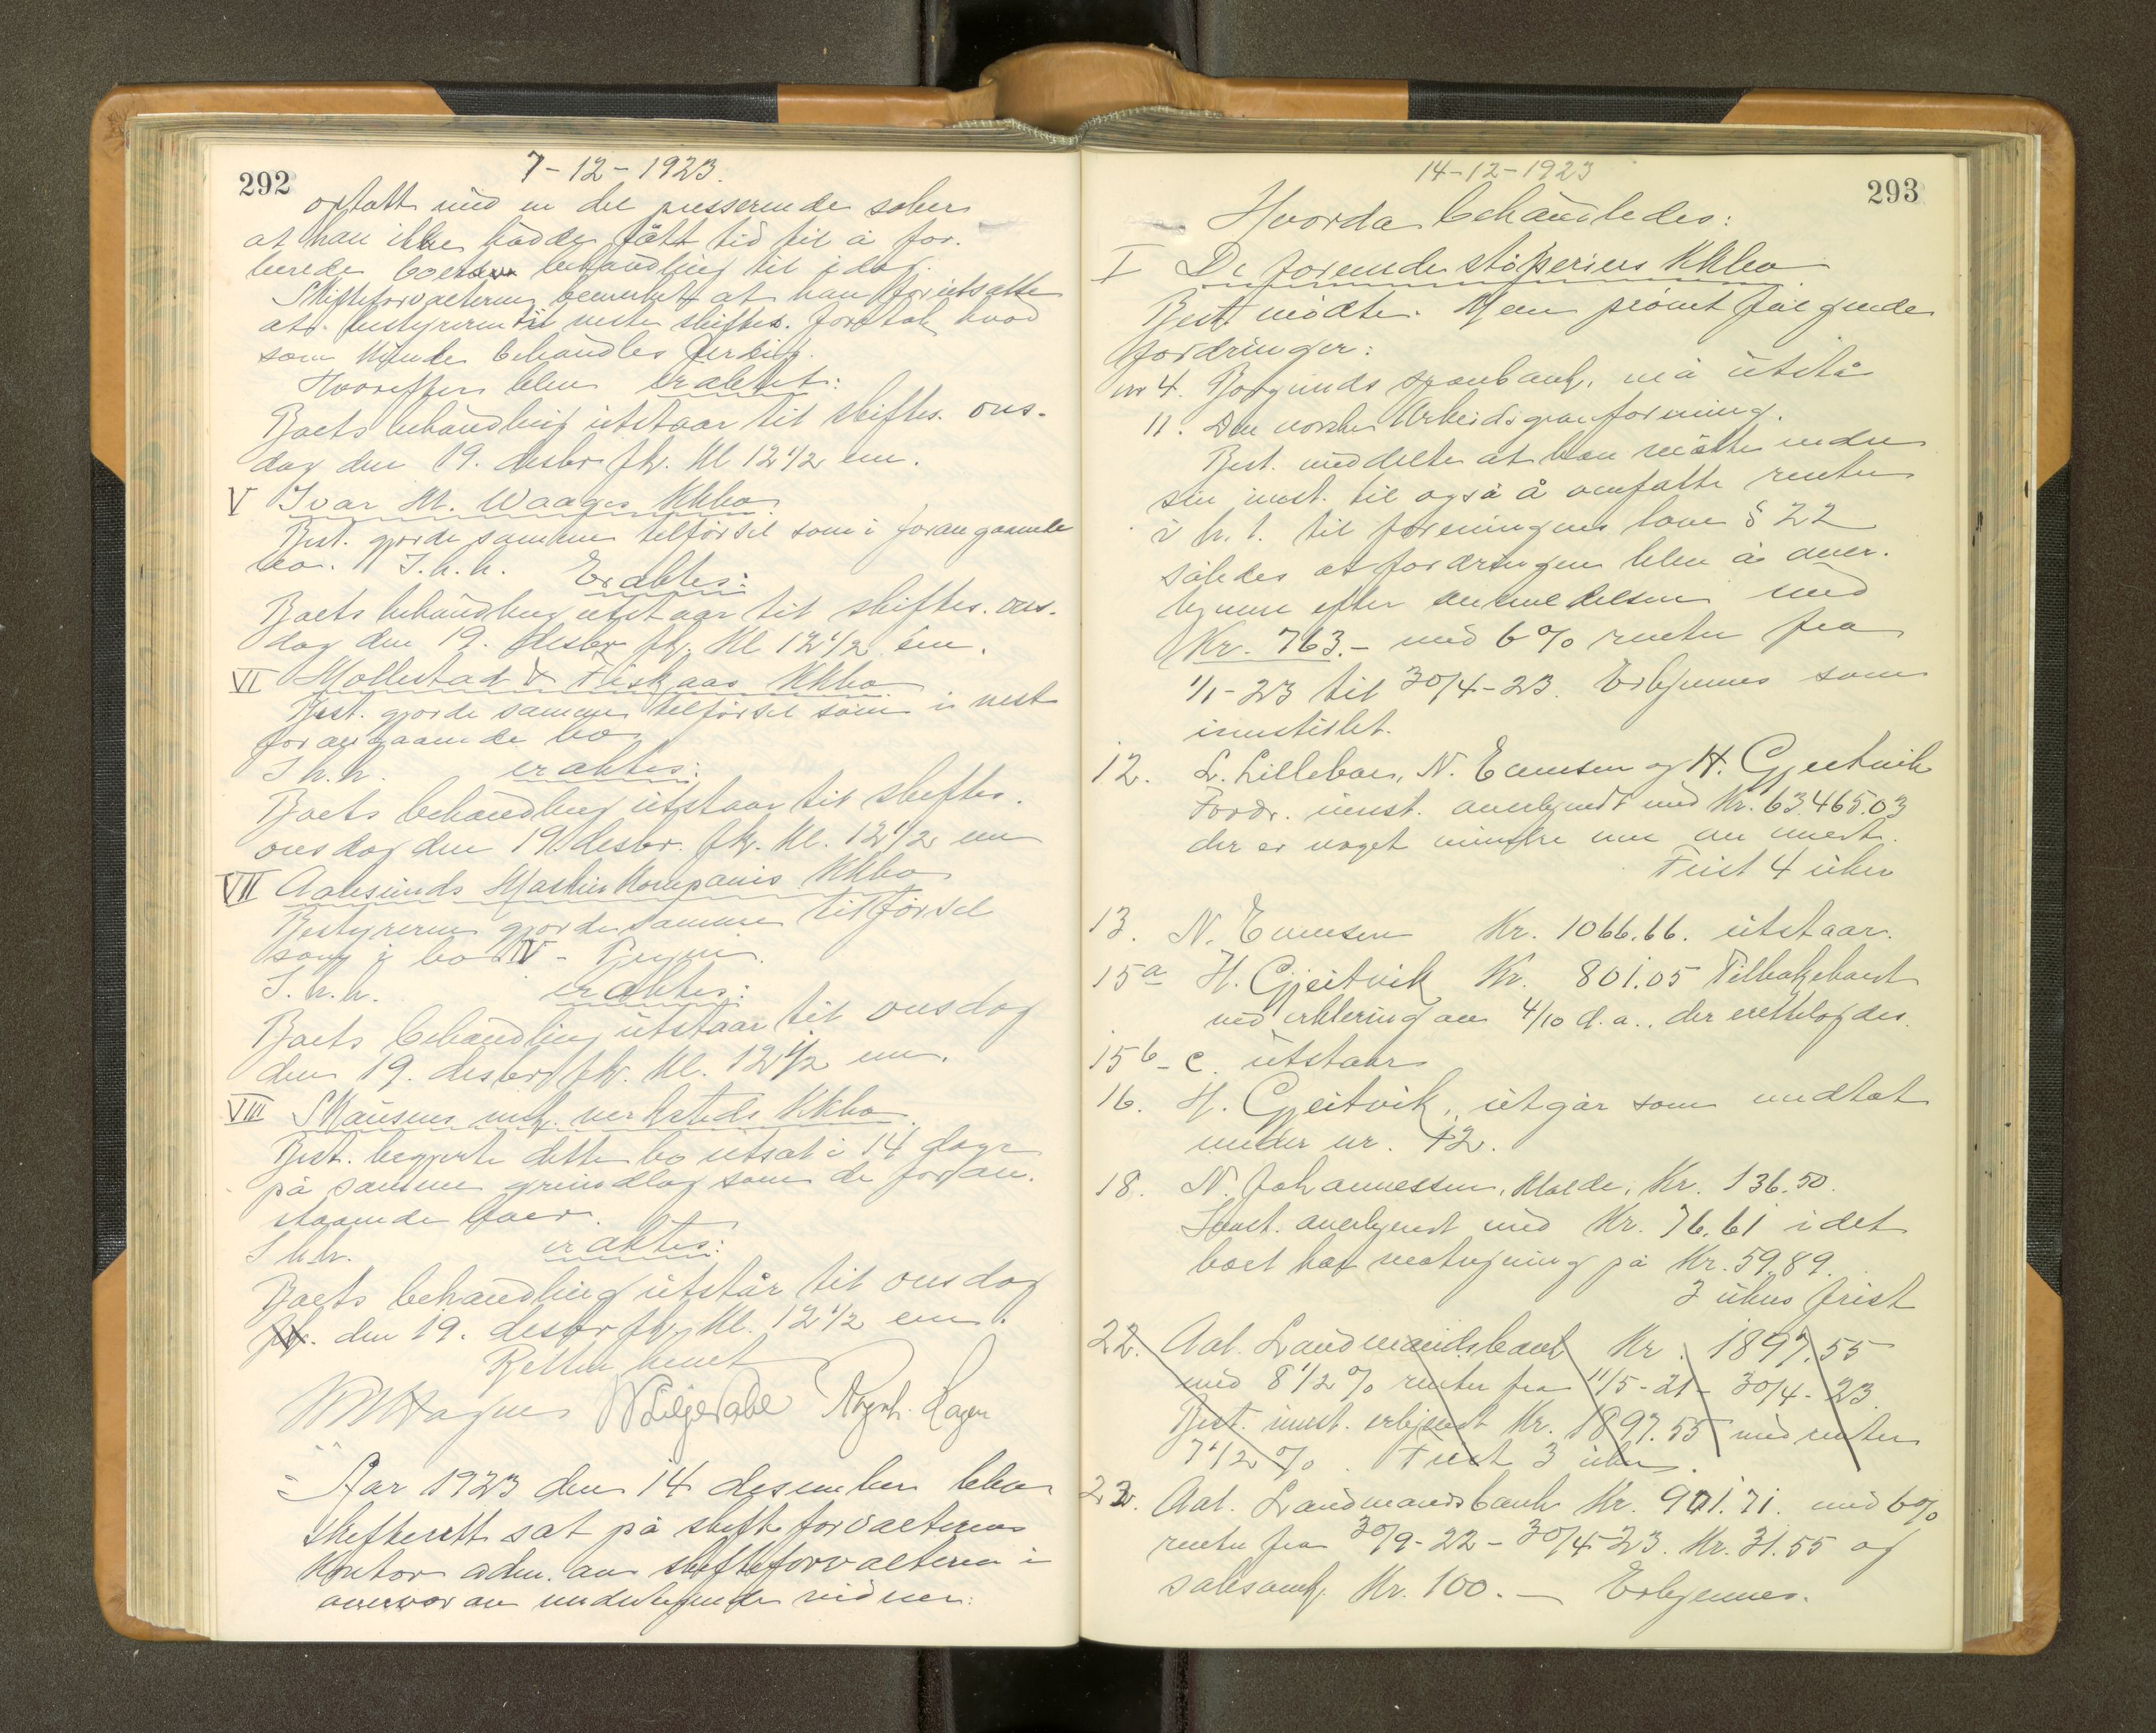 292
7-12-1923.
optatt med en del presserende saker
at han ikke hadde fått tid til å for-
berede boets behandling til idag.
Skifteforvalteren bemerket at han forutsatte
at bestyreren til neste skiftes. foretok hvad
som kunde behandles
Hvorefter blev eraktet:
Boets behandling utstaar til skiftes. ons-
dag den 19. desbr fk. Kl 12 1/2 em.
V Ivar M. Waages Kkbo
Best. gjorde samme tilførsel som i forangaaende
bo. S.h.h. Eraktes:
Boets behandling utstaar til skiftes. ons-
dag den 19. desbr fk. Kl 12 1/2 em.
VI Mollestad & Fiskaas Kkbo
Best. gjorde samme tilførsel som i nest
forangaaende bo
S h.h. eraktes:
Boets behandling utstaar til skiftes.
onsdag den 19. desbr. fk. Kl. 12 1/2 em
VII Aalesunds Maskinkompanis Kkbo
Bestyreren gjorde samme tilførsel
som i bo IV -
S.h.h. eraktes:
Boets behandling utstaar til onsdag
den 19. desbr fk. Kl. 12 1/2 em.
VIII Skausens mek. verksteds Kkbo.
Best. begjærte dette bo utsat i 14 dage
på samme grundlag som de foran-
staaende boer.
S h.h. eraktes:
Boets behandling utstår til onsdag
den 19. desbr fk. Kl. 12 1/2 em.
Retten hevet
Hagnes Liljedahl Hagen
Aar 1923 den 14 desember blev
skifterett sat på skifteforvalterens
kontor adm. av skifteforvalteren i
overvær av undertegnede vidner:
14-12-1923
293
Hvorda behandledes:
I De forenede støperiers Kkbo
Best. mødte. Man prøvet følgende
fordringer:
nr 4. Borgunds sparebank, må utstå
11. Den norske Arbeidsgiverforening.
Best. meddelte at han måtte endre
sin innst. til også å omfatte renter
i h. t. til foreningens love § 22
således at fordringen blev å aner-
kjenne efter anmeldelsen med
Kr. 763.- med 6% renter fra
1/1-23 til 30/4-23. Erkjennes som
innstillet.
12. L. Lillebøe, N. Evensen og H. Gjeitvik
Fordr. innst. anerkjendt med Kr. 63.465.03
der er noget mindre enn anmeldt.
Frist 4 uker
13. N. Evensen Kr. 1066.66. utstaar.
15a H. Gjeitvik Kr. 801.05 Tilbakekaldt
ved erklering av 4/10 d.a., der fremlagdes.
15b-c. utstaar
16. H. Gjeitvik, utgår som medtat
under nr. 12.
18. N. Johannessen, Molde, Kr. 136.50.
Innst. anerkjendt med Kr. 76.61 idet
boet har motregning på Kr. 59.89.
3 ukers frist
22. Aal. Landmandsbank Kr. 1897.55
med 8 1/2 % renter fra 11/5-21 - 30/4-23.
Best. innst. erkjendt Kr. 1897.55 med renter
7 1/2 %. Frist 3 uker.
22. Aal. Landmandsbank Kr. 901.71. med 6%
renter fra 30/9-22 - 30/4-23. Kr. 31.55 og
saksomk. Kr. 100.- Erkjennes.